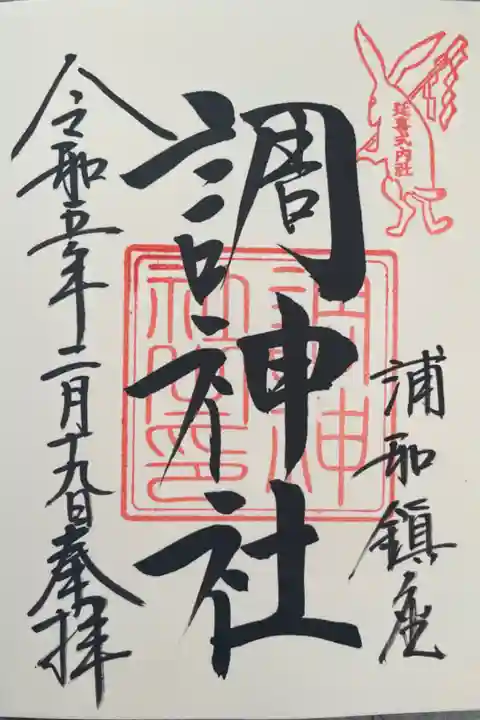 延喜式内社
浦和鎮座
調神社
令和五年二月十九日奉拝